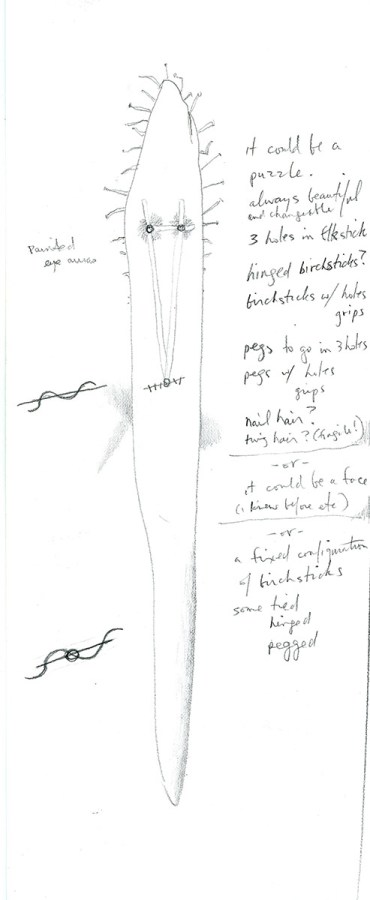 Painted
eye auras
it could be a
puzzle.
always beautiful
and changeable
3 holes in Elkstick
hinged birchsticks?
birchsticks w/ holes
grips
pegs to go in 3 holes
pegs w/ holes
grips
nail hair?
twig hair? (fragile!)
-or-
it could be a face
(1 knew before etc)
-or-
a fixed configuration
of birchsticks
some tied
hinged
pegged